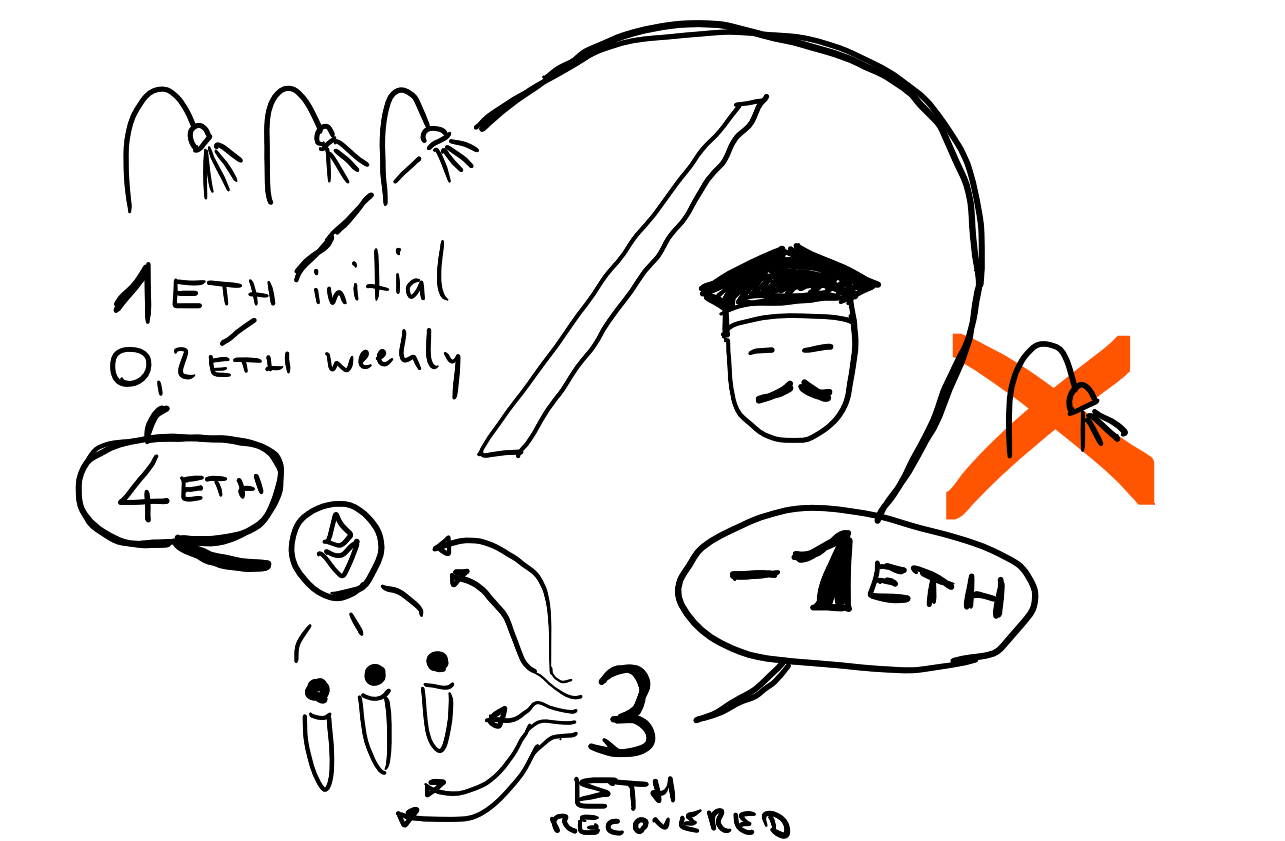 1 ETH initial
0,2 ETH weekly
4 ETH
-1 ETH
3
ETH
RECOVERED